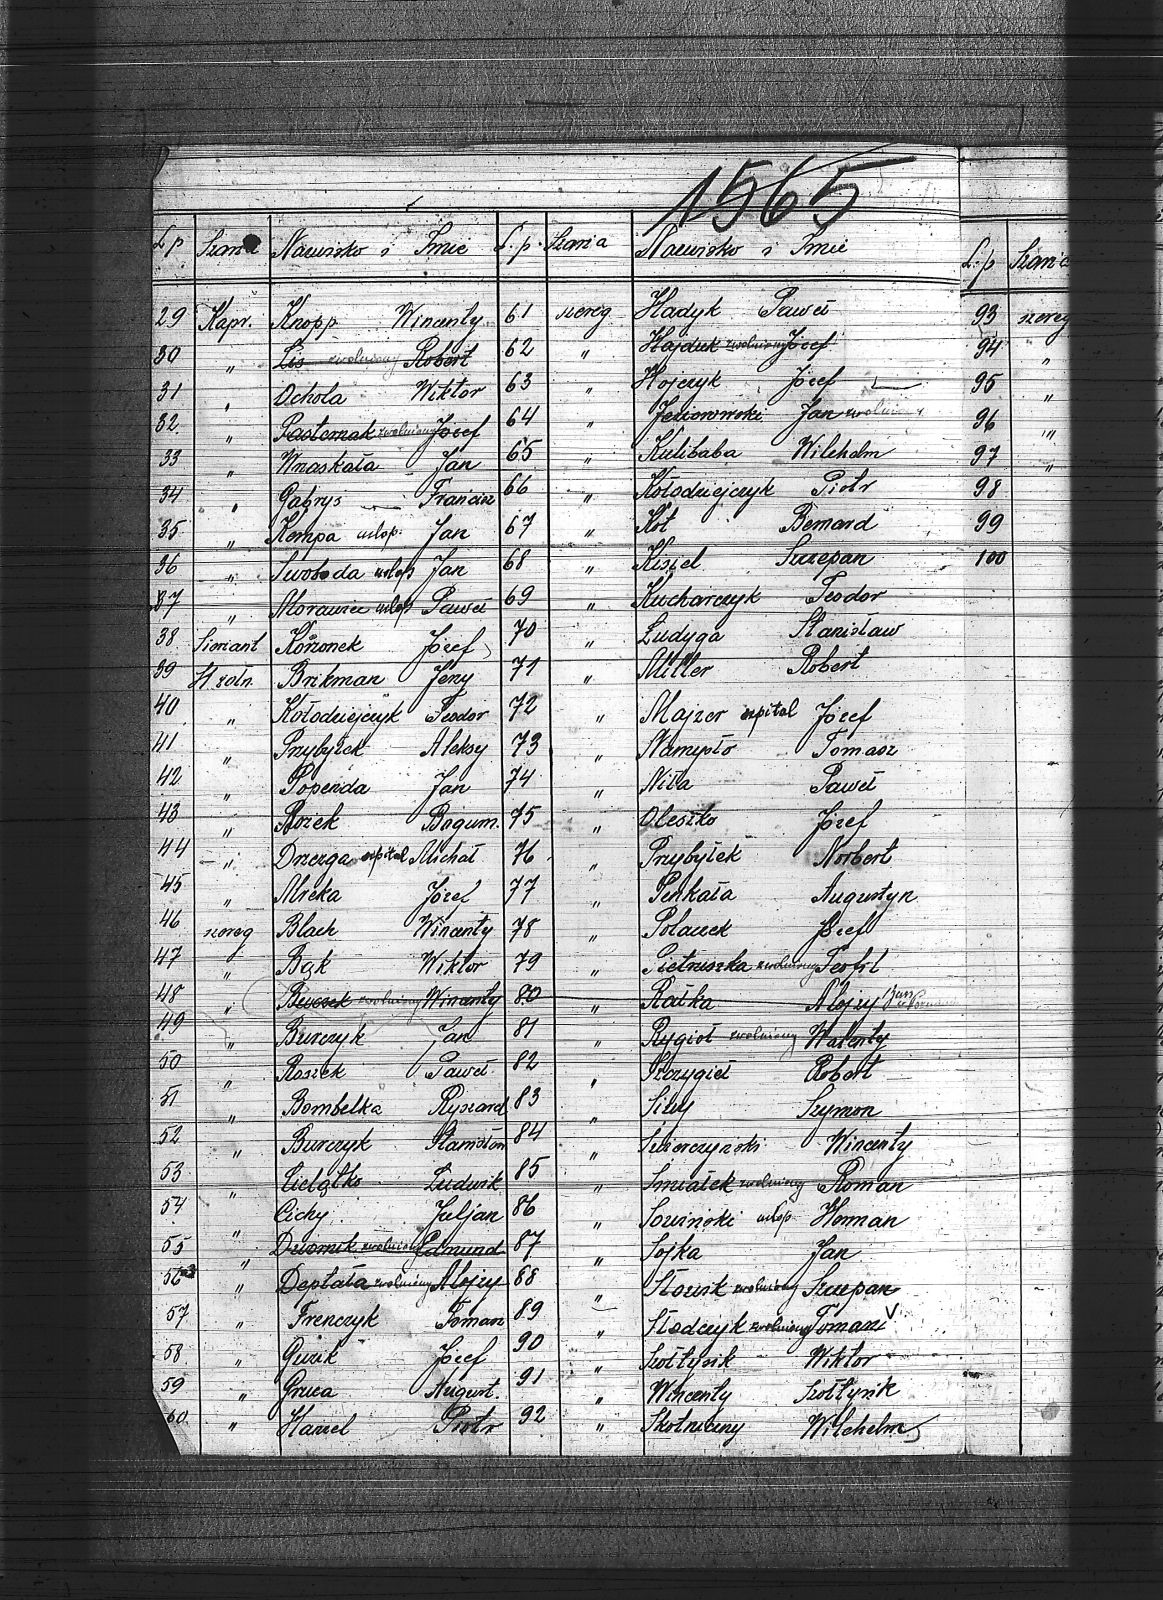 1565
L. p Szarża Nazwisko i Imię L. p. Szarża Nazwisko i Imię L. p Szarża
29 Kapr. Knopp Wincenty 61 szereg Hadyk Paweł 93 szereg
30 " Lis zwolniony Robert 62 " Hajduk zwolniony Józef 94 "
31 " Ochola Wiktor 63 " Hojczyk Józef 95 "
32 " Pasternak zwolniony Józef 64 " Jeziorowski Jan zwolniony 96 "
33 " Wraskała Jan 65 " Kulibaba Wilhelm 97 "
34 " Gabrys Francisz 66 " Kołodziejczyk Piotr 98
35 " Kempa urlop. Jan 67 " Kot Bernard 99
36 " Swoboda urlop Jan 68 " Kisiel Szczepan 100
37 " Morawiec urlop Paweł 69 " Kucharczyk Teodor
38 Sierżant Korzonek Józef 70 " Ludyga Stanisław
39 St. żołn. Brikman Jerzy 71 " Miller Robert
40 " Kołodziejczyk Teodor 72 " Majzer szpital Józef
41 " Przybyłek Aleksy 73 " Namysło Tomasz
42 " Popenda Jan 74 " Niła Paweł
43 " Rożek Bogum. 75 " Oleszko Józef
44 " Drzezga szpital Michał 76 " Przybyłek Norbert
45 " Micka Józef 77 " Penkała Augustyn
46 szereg Blach Wincenty 78 " Polaczek Józef
47 " Bąk Wiktor 79 " Pietruszka zwolniony Teofil
48 " zwolniony Wincenty 80 " Ratka Alojzy
49 " Burczyk Jan 81 " Rygioł zwolniony Walenty
50 " Roszek Paweł 82 " Szczygieł Robert
51 " Bombelka Ryszard 83 " Siwy Szymon
52 " Burczyk Stanisław 84 " Wincenty
53 " Cielątko Ludwik 85 " Smiałek zwolniony Roman
54 " Cichy Juljan 86 " Sowiński urlop Herman
55 " Dziornik zwolniony Edmund 87 " Sojka Jan
56 " Deptała zwolniony Alojzy 88 " Słowik zwolniony Szczepan
57 " Frenczyk Tomasz 89 " Słodczyk zwolniony Tomasz V
58 " Guzik Józef 90 " Szołtysik Wiktor
59 " Gruca August. 91 " Wincenty Szołtysik
60 " Haniel Piotr 92 " Skotniczny Wilchelm